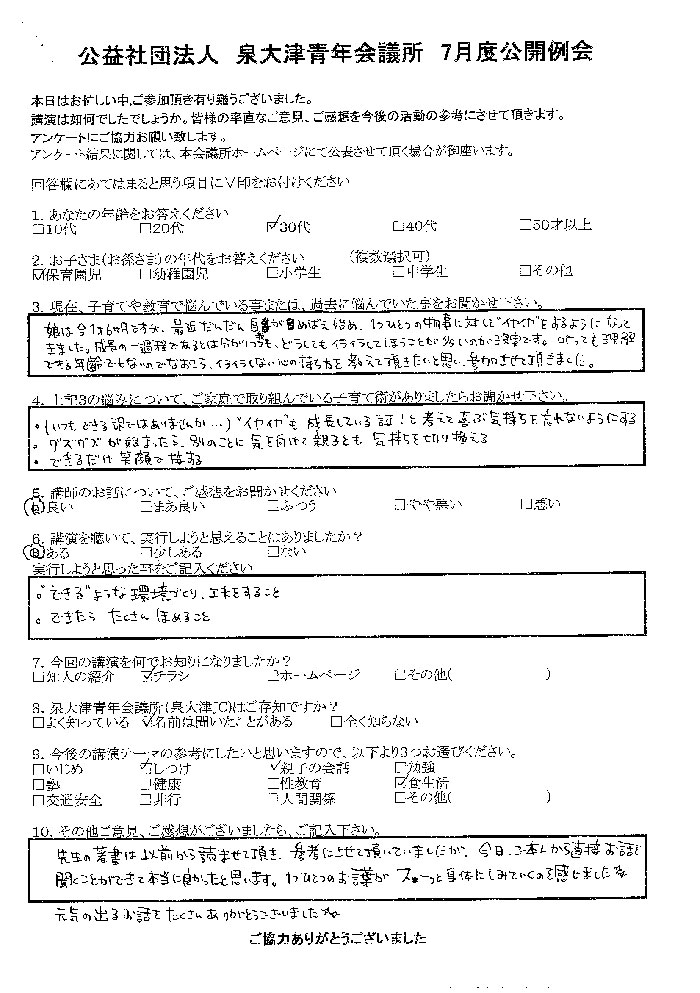 公益社団法人　泉大津青年会議所　7月度公開例会
本日はお忙しい中、ご参加頂き有り難うございました。
講演は如何でしたでしょうか。皆様の率直なご意見、ご感想を今後の活動の参考にさせて頂きます。
アンケートにご協力お願い致します。
アンケート結果に関しては、本会議所ホームページにて公表させて頂く場合が御座います。
回答欄にあてはまると思う項目に∨印をお付けください
1. あなたの年齢をお答えください
□10代 □20代 ☑30代 □40代 □50才以上
2. お子さま(お孫さま)の年代をお答えください (複数選択可)
☑保育園児 □幼稚園児 □小学生 □中学生 □その他
3. 現在、子育てや教育で悩んでいる事または、過去に悩んでいた事をお聞かせ下さい。
娘は今1才6ヶ月ですが、最近だんだん自我が目めばえ始め、1つひとつの物事に対し"イヤイヤ"をするようになって
きました。成長の一過程であるとは分かりつつも、どうしてもイライラしてしまうことが多いのが現実です。叱っても理解
できる年齢でもないのでなおさら、イライラしない心の持ち方を教えて頂きたいと思い、参加させて頂きました。
4. 上記3の悩みについて、ご家庭で取り組んでいる子育て術がありましたらお聞かせ下さい。
・(いつもできる訳ではありませんが…)"イヤイヤ"も成長している証！と考えて喜ぶ気持ちを忘れないようにする
・グズグズが始まったら、別のことに気を向けて親子とも気持ちを切り換える
・できるだけ笑顔で接する
5. 講師のお話について、ご感想をお聞かせください
□良い □まあ良い □ふつう □やや悪い □悪い
6. 講演を聴いて、実行しようと思えることはありましたか？
□ある □少しある □ない
実行しようと思った事をご記入ください
。"できる"ような環境づくり、工夫をすること
・できたら たくさん ほめること
7. 今回の講演を何でお知りになりましたか？
□知人の紹介 ☑チラシ □ホームページ □その他( )
8. 泉大津青年会議所(泉大津JC)はご存知ですか？
□よく知っている ☑名前は聞いたことがある □全く知らない
9. 今後の講演テーマの参考にしたいと思いますので、以下より3つお選びください。
□いじめ ☑しつけ ☑親子の会話 □勉強
□塾 □健康 □性教育 ☑食生活
□交通安全 □非行 □人間関係 □その他( )
10. その他ご意見、ご感想がございましたら、ご記入下さい。
先生の著書は以前から読ませて頂き、参考にさせて頂いていましたが、今日、ご本人から直接お話を
聞くことができて本当に良かったと思います。1つひとつのお言葉が スーっと身体にしみていくのを感じました
元気の出るお話をたくさんありがとうございました
ご協力ありがとうございました